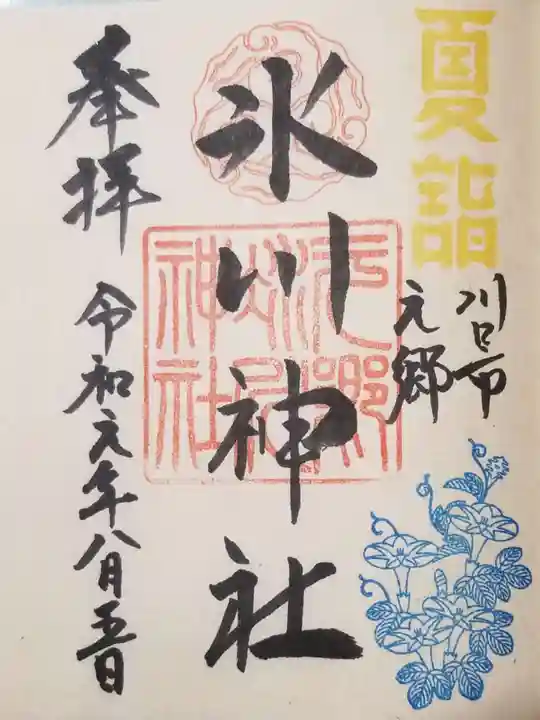 夏詣
川口市
元郷
氷川神社
元郷氷川神社
奉拝
令和元年八月五日